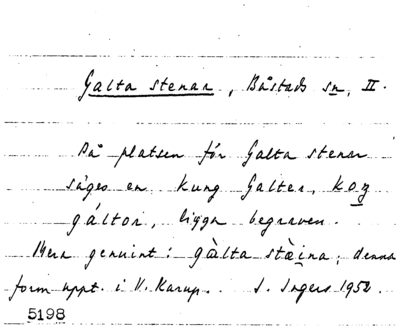 Galta stenar, Båstads sn, II.
På platsen för Galta stenar
säges en kung Galter, koŋ
gáltor, ligga begraven.
Mera genuint: gàlta stæ̀ina; denna
form uppt. i V. Karup. I. Ingers 1952.
5198